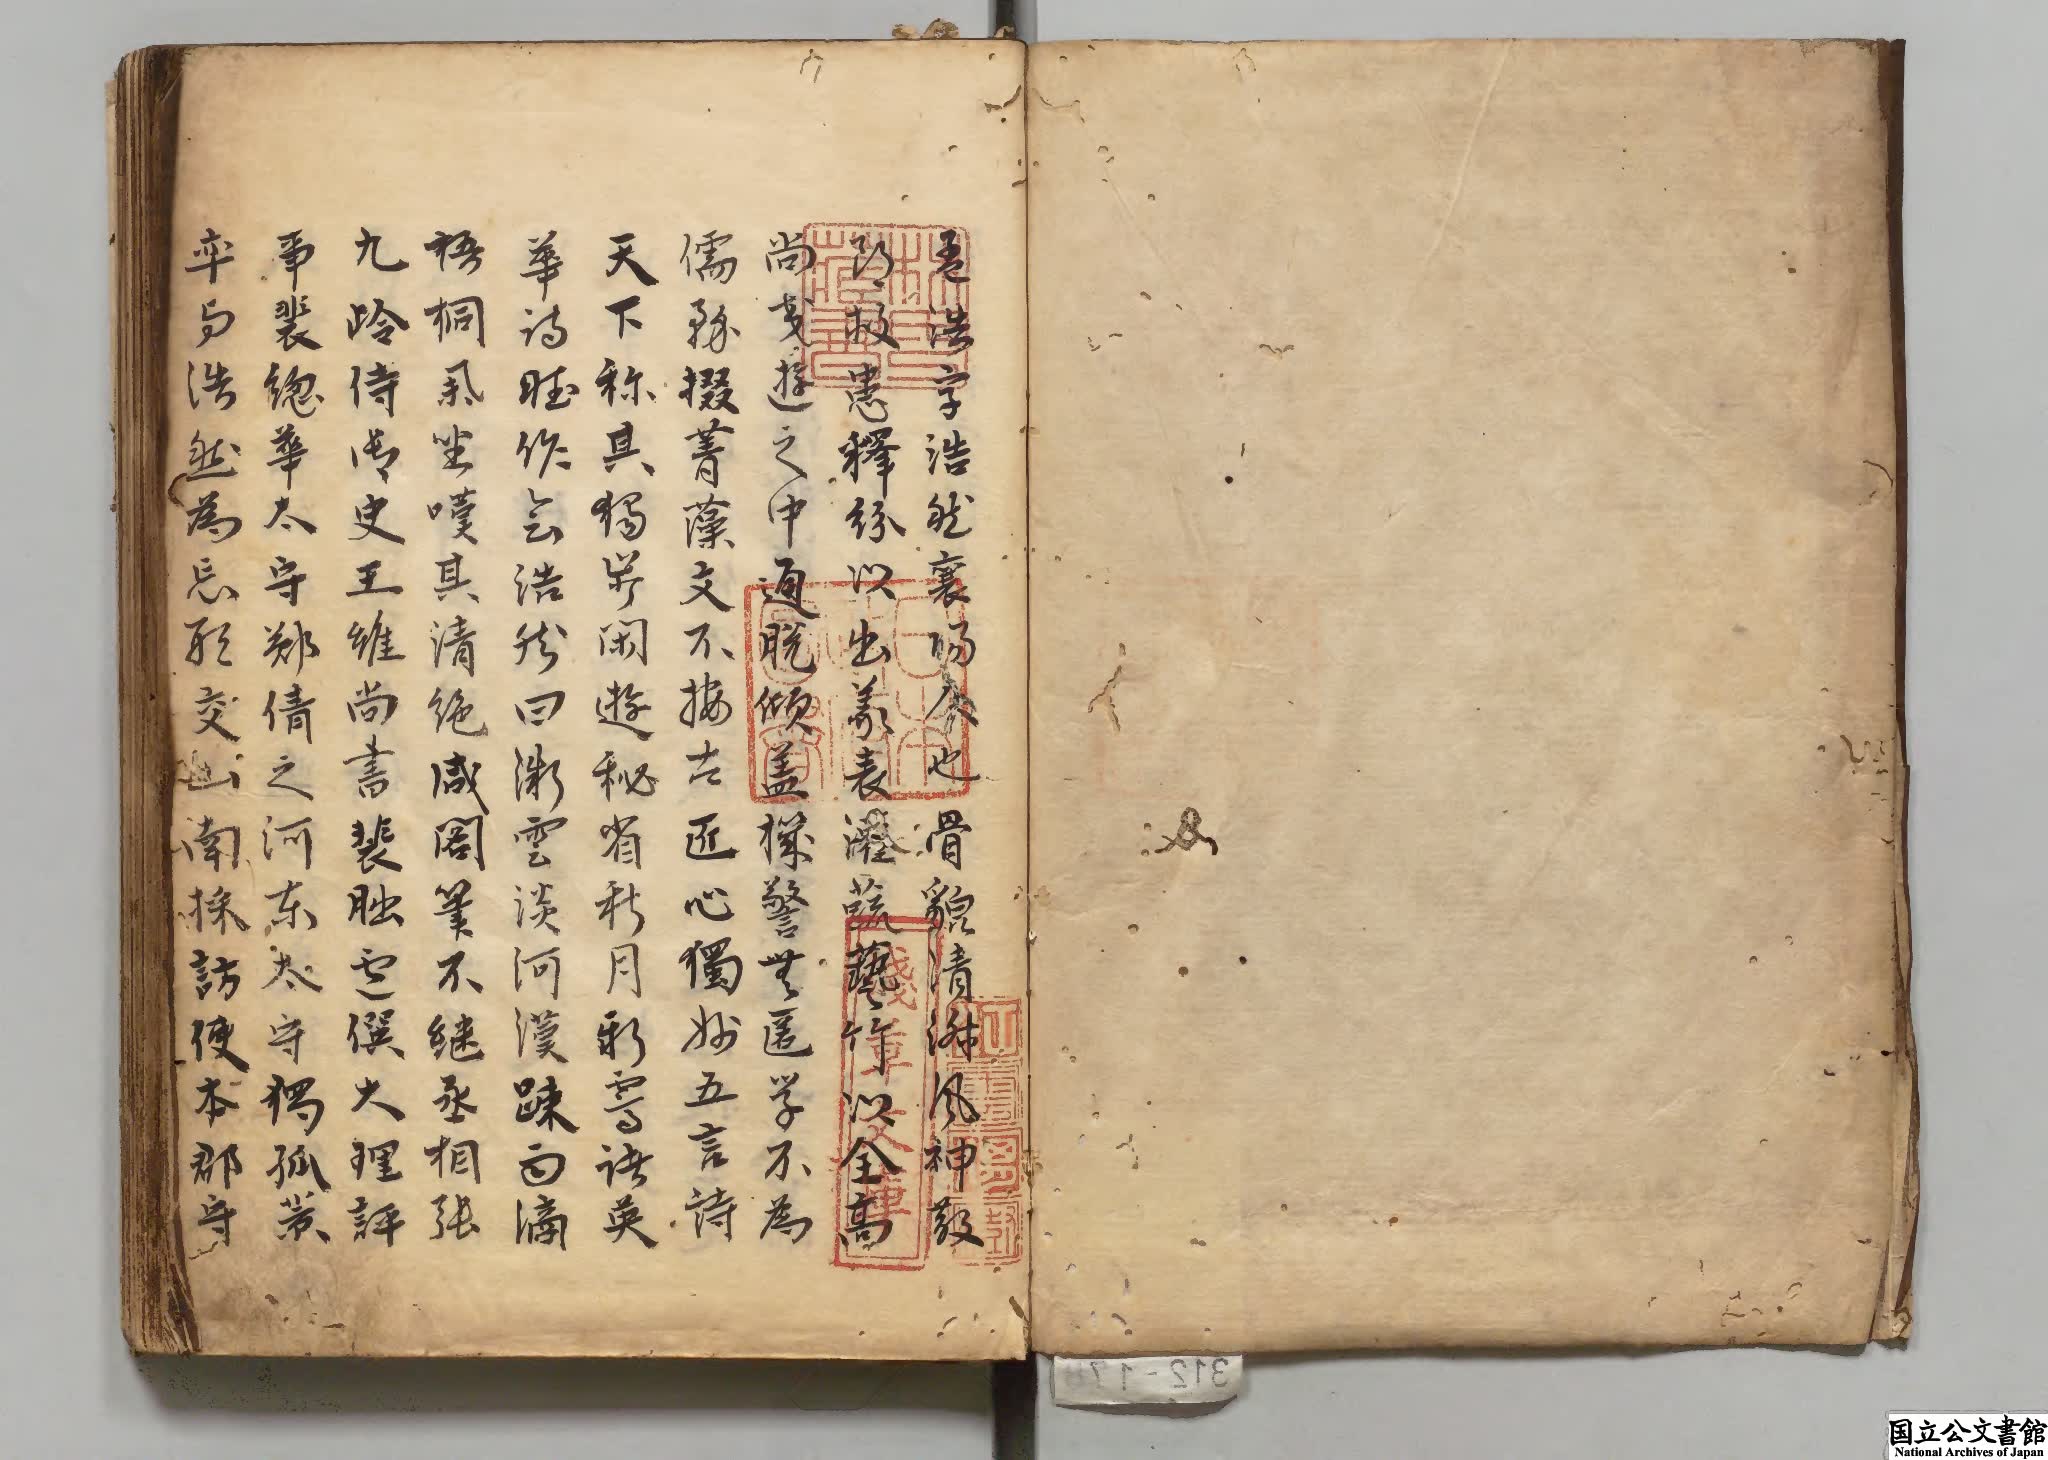 孟浩字浩然襄陽人也骨貌淸淋風神散
朗救患釋紛以出義表灌蔬藝竹以全高
尚交遊之中通脫傾蓋機警無匿学不為
儒務掇菁藻文不按古匠心獨妙五言詩
天下称其獨岁閑遊秘省秋月新霽諸英
華詩賦作会浩然曰微雲淡河漢踈雨滴
梧桐舉坐嘆其清絶咸閣筆不継丞相張
九齡侍御史王維尚書裴朏盧僎大理評
事裴總華太守鄭倩之河東太守獨孤策
率与浩然為忘形交山南採訪使本郡守
林氏蔵書
日本政府図書
淺草文庫
312-17
国立公文書館
National Archives of Japan